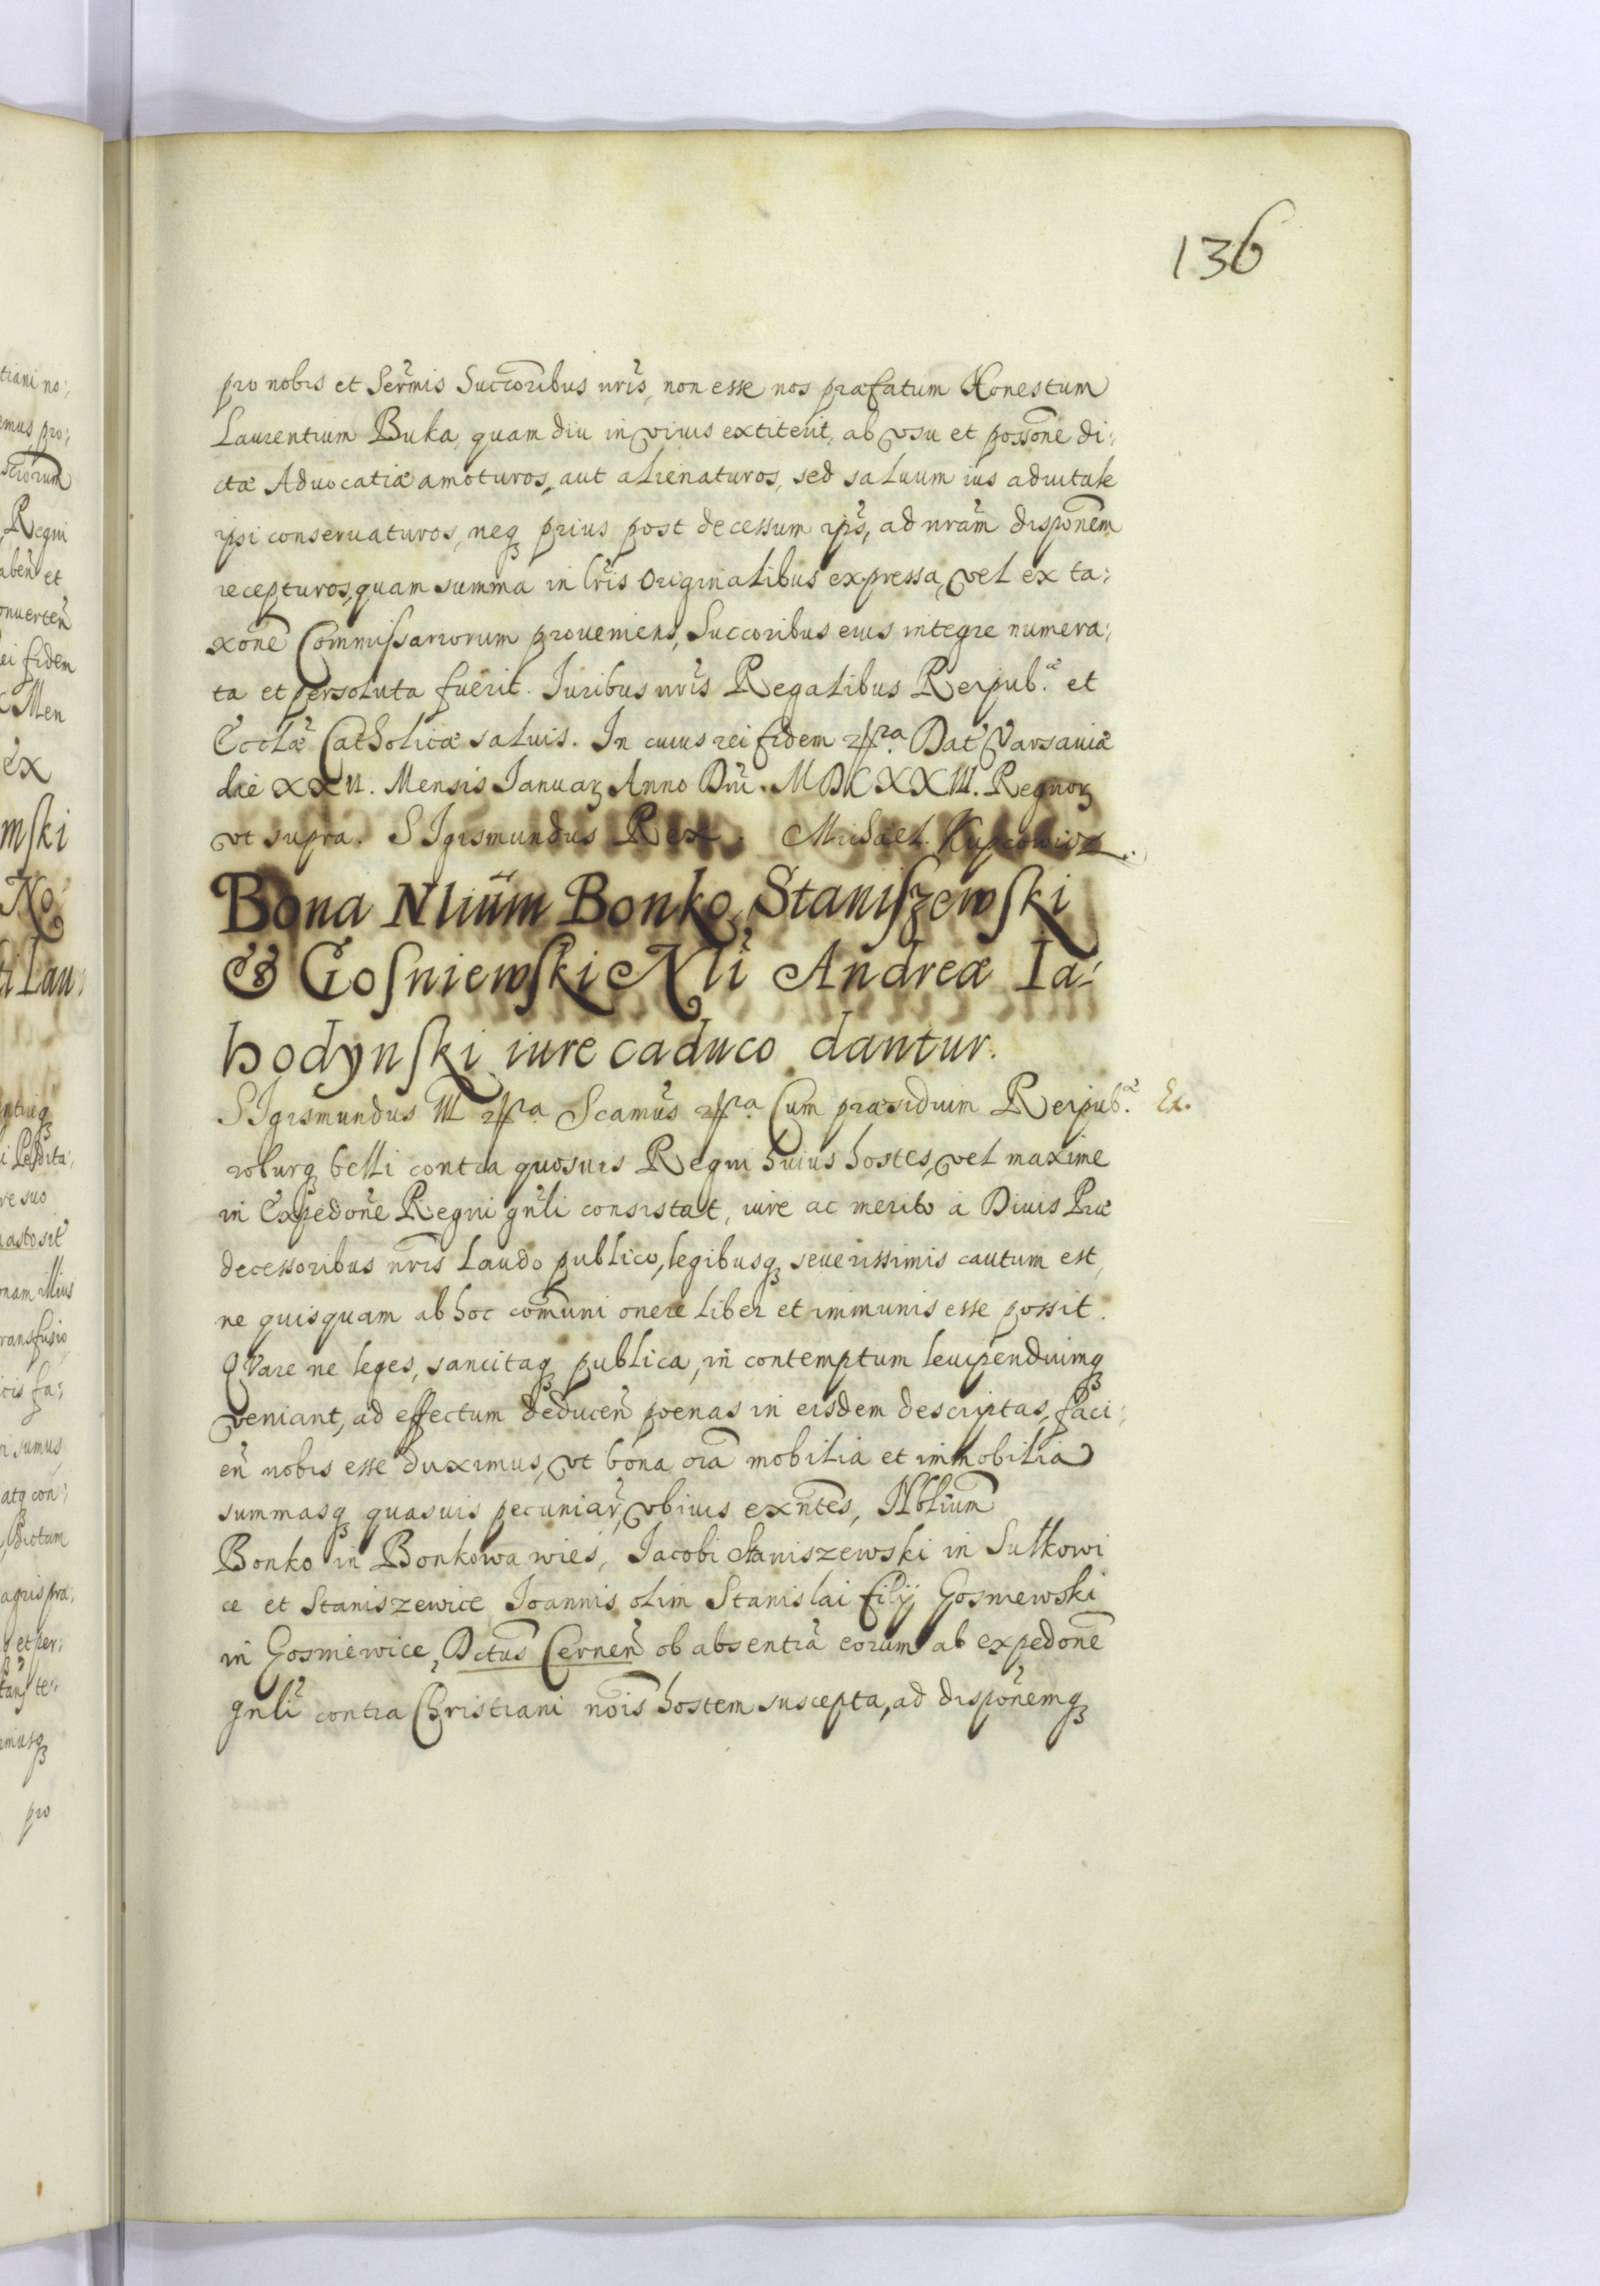 136
pro nobis et Sermis Succoribus nris, non esse nos præfatum Honestum
Laurentium Buka, quam diu in viuis extiterit, ab vsu et possone di:
ctæ Aduocatiæ amoturos, aut alienaturos, sed saluum ius aduitale
ipsi conseruaturos, neq prius post decessum ips, ad nram disponem
recepturos, quam summa in lris Originalibus expressa, vel ex ta:
xone Commissariorum proueniens, Succoribus eius integre numera:
ta et persoluta fuerit. Iuribus nris Regalibus Reipub.æ et
Ecclæ Catholicæ saluis. In cuius rei fidem Dat Varsauiæ
die XXII. Mensis Ianuar Anno Dni. MDCXXIII. Regnor
vt supra. SIgismundus Rex. Michael Kupcowicz.
Bona Nlium Bonko, Staniszewski
& Gosniewski Nli Andreæ Ia:
hodynski iure caduco dantur.
SIgismundus III Scamus Cum præsidium Reipub.æ Ex.
roburq belli contra quosuis Regni huius hostes, vel maxime
in Expedone Regni gnli consistat, iure ac merito a Diuis Præ
decessoribus nris Laudo publico, legibusq seuerissimis cautum est,
ne quisquam ab hoc comuni onere liber et immunis esse possit.
QVare ne leges, sancitaq publica, in contemptum leuipendiumq
veniant, ad effectum deducen poenas in eisdem descriptas, faci:
en nobis esse duximus, vt bona oia mobilia et immobilia
summasq quasuis pecuniar, vbiuis exntes, Nblium
Bonko in Bonkowa wies, Iacobi Staniszewski in Sułkowi
ce et Staniszewice, Ioannis olim Stanislai filij Gosniewski
in Gosniewice, Dctus Cernen ob absentia eorum ab expedone
gnli contra Christiani nois hostem suscepta, ad disponemq